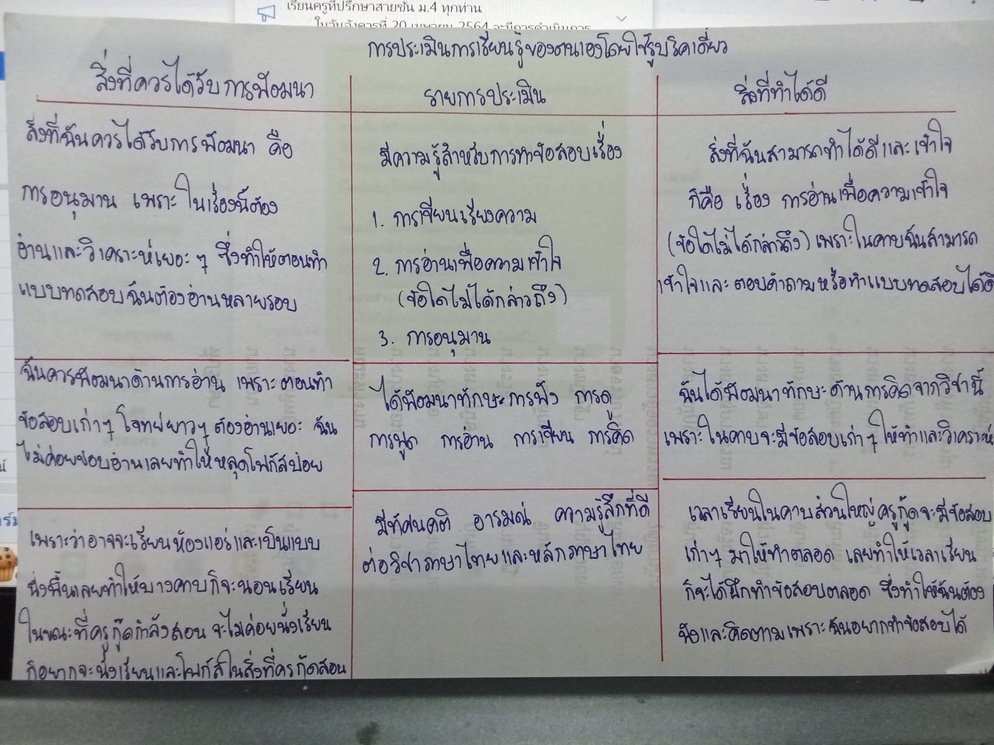 เรียนครูที่ปรึกษาสายชั้น ม.4 ทุกท่าน
ในวันอังคารที่ 20 เมษายน 2564 จะมีการดำเนินการ
การประเมินการเรียนรู้ของตนเองโดยใช้รูบริคเดี่ยว
สิ่งที่ควรได้รับการพัฒนา
สิ่งที่ฉันควรได้รับการพัฒนา คือ
การอนุมาน เพราะในเรื่องนี้ต้อง
อ่านและวิเคราะห์เยอะ ๆ ซึ่งทำให้ตอนทำ
แบบทดสอบฉันต้องอ่านหลายรอบ
ฉันควรพัฒนาด้านการอ่าน เพราะตอนทำ
ข้อสอบเก่าๆ โจทย์ยาวๆ ต้องอ่านเยอะ ฉัน
ไม่ค่อยชอบอ่านเลยทำให้หลุดโฟกัสบ่อย
เพราะว่าอาจจะเรียนห้องแอร์และเป็นแบบ
นั่งพื้นเลยทำให้บางคาบก็จะนอนเรียน
ในขณะที่ครูกู๊ดกำลังสอน จะไม่ค่อยนั่งเรียน
ก็อยากจะนั่งเรียนและโฟกัสในสิ่งที่ครูกู๊ดสอน
รายการประเมิน
มีความรู้สำหรับการทำข้อสอบเรื่อง
1. การเขียนเรียงความ
2. การอ่านเพื่อความเข้าใจ
(ข้อใดไม่ได้กล่าวถึง)
3. การอนุมาน
ได้พัฒนาทักษะการฟัง การดู
การพูด การอ่าน การเขียน การคิด
มีทัศนคติ อารมณ์ ความรู้สึกที่ดี
ต่อวิชาภาษาไทยและหลักภาษาไทย
สิ่งที่ทำได้ดี
สิ่งที่ฉันสามารถทำได้ดีและเข้าใจ
ก็คือ เรื่อง การอ่านเพื่อความเข้าใจ
(ข้อใดไม่ได้กล่าวถึง) เพราะในคาบฉันสามารถ
เข้าใจและตอบคำถามหรือทำแบบทดสอบได้ดี
ฉันได้พัฒนาทักษะด้านการคิดจากวิชานี้
เพราะในคาบจะมีข้อสอบเก่าๆ ให้ทำและวิเคราะห์
เวลาเรียนในคาบส่วนใหญ่ครูกู๊ดจะมีข้อสอบ
เก่าๆ มาให้ทำตลอด เลยทำให้เวลาเรียน
ก็จะได้ฝึกทำข้อสอบตลอด ซึ่งทำให้ฉันต้อง
ฟังและคิดตามเพราะฉันอยากทำข้อสอบได้